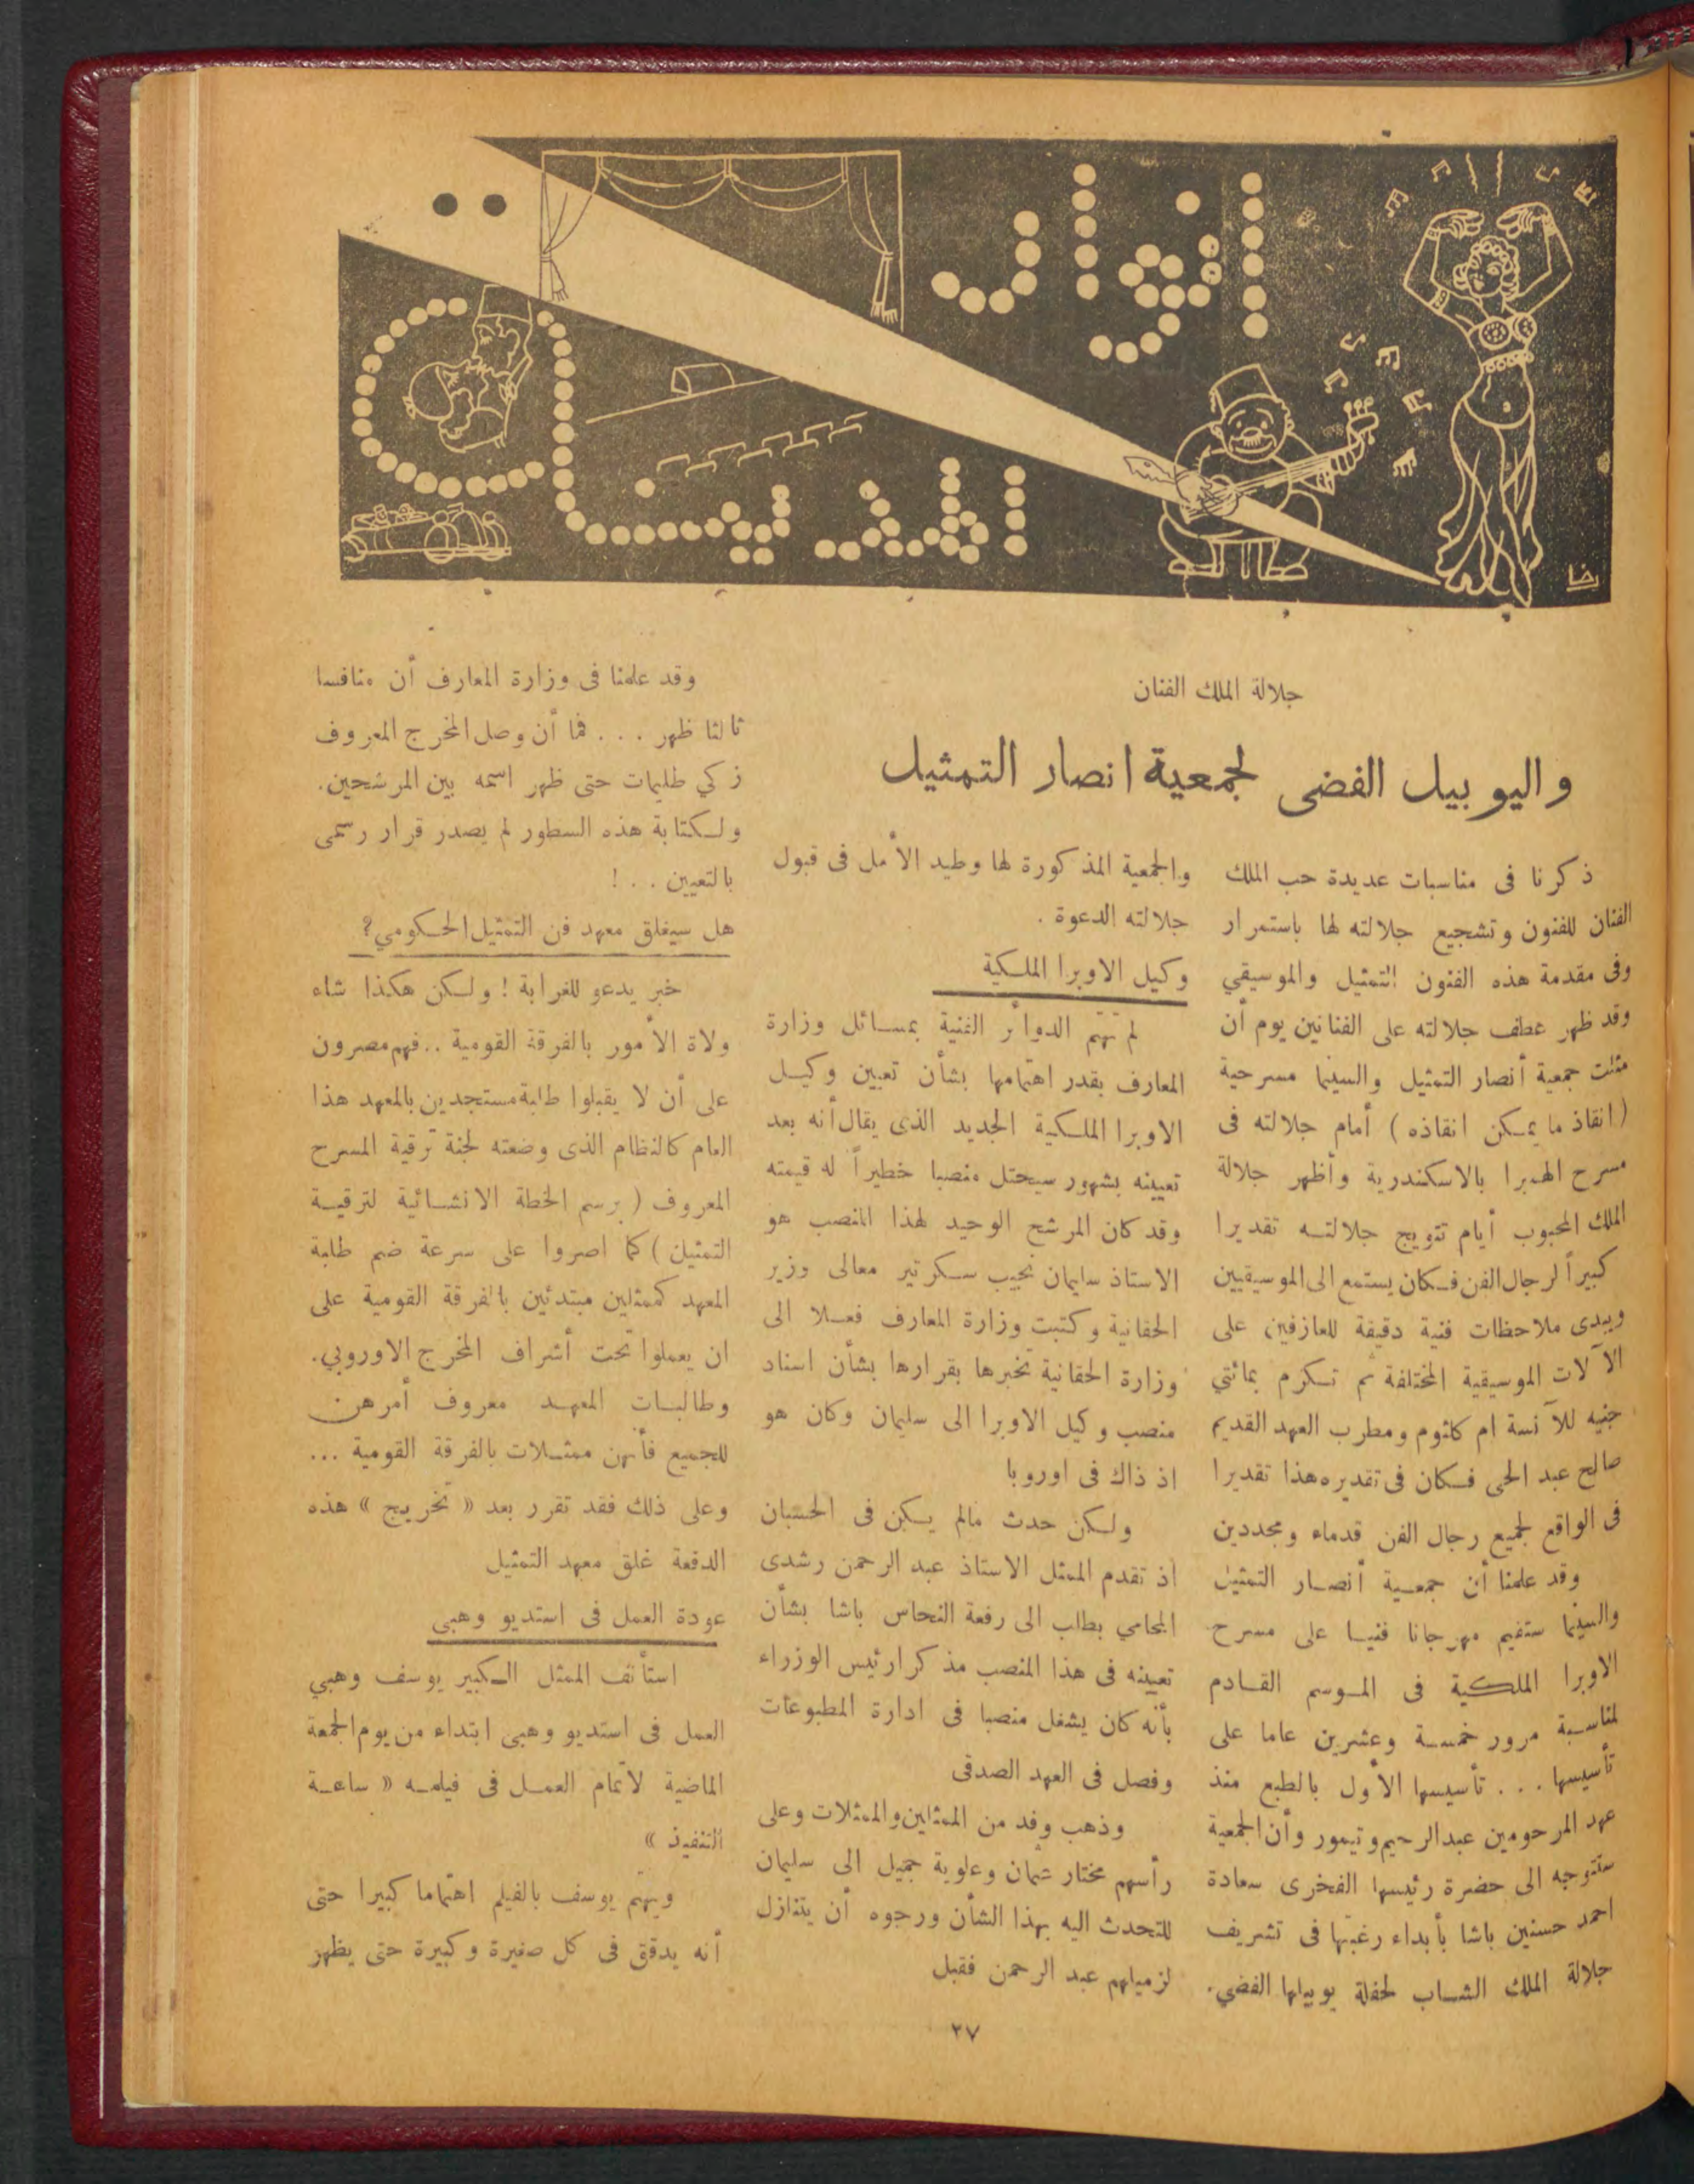 انوار
المدينة
رضا
جلالة الملك الفنان
واليوبيل الفضى لجمعية انصار التمثيل
ذكرنا فى مناسبات عديدة حب الملك
الفنان للفنون وتشجيع جلالته لها باستمرار
وفى مقدمة هذه الفنون التمثيل والموسيقي
وقد ظهر عطف جلالته على الفنانين يوم أن
مثلت جمعية أنصار التمثيل والسينما مسرحية
(انقاذ ما يمكن انقاذه) أمام جلالته فى
مسرح الهمبرا بالاسكندرية وأظهر جلالة
الملك المحبوب أيام تتويج جلالته تقديرا
كبيراً لرجال الفن فكان يستمع الى الموسيقيين
ويبدى ملاحظات فنية دقيقة للعازفين على
الآلات الموسيقية المختلفة ثم تكرم بمائتي
جنيه للآنسة ام كلثوم ومطرب العهد القديم
صالح عبد الحى فكان فى تقديره هذا تقديرا
فى الواقع لجميع رجال الفن قدماء ومجددين
وقد علمنا أن جمعية أنصار التمثيل
والسينما ستقيم مهرجانا فنيا على مسرح
الاوبرا الملكية فى الموسم القادم
لمناسبة مرور خمسة وعشرين عاما على
تأسيسها . . . تأسيسها الأول بالطبع منذ
عهد المرحومين عبدالرحيم وتيمور وأن الجمعية
ستتوجه الى حضرة رئيسها الفخرى سعادة
احمد حسنين باشا بأبداء رغبتها فى تشريف
جلالة الملك الشاب لحفلة يوبيلها الفضي.
والجمعية المذكورة لها وطيد الأمل فى قبول
جلالته الدعوة .
وكيل الاوبرا الملكية
لم تهتم الدوائر الفنية بمسائل وزارة
المعارف بقدر اهتمامها بشأن تعيين وكيل
الاوبرا الملكية الجديد الذى يقال أنه بعد
تعيينه بشهور سيحتل منصبا خطيراً له قيمته
وقد كان المرشح الوحيد لهذا المنصب هو
الاستاذ سليمان نجيب سكرتير معالى وزير
الحقانية وكتبت وزارة المعارف فعلا الى
وزارة الحقانية تخبرها بقرارها بشأن اسناد
منصب وكيل الاوبرا الى سليمان وكان هو
اذ ذاك فى اوروبا
ولكن حدث مالم يكن فى الحسبان
اذ تقدم الممثل الاستاذ عبد الرحمن رشدى
المحامي بطلب الى رفعة النحاس باشا بشأن
تعيينه فى هذا المنصب مذكرا رئيس الوزراء
بأنه كان يشغل منصبا فى ادارة المطبوعات
وفصل فى العهد الصدقى
وذهب وفد من الممثلين والممثلات وعلى
رأسهم مختار عثمان وعلوية جميل الى سليمان
للتحدث اليه بهذا الشأن ورجوه أن يتنازل
لزميلهم عبد الرحمن فقبل
وقد علمنا فى وزارة المعارف أن منافسا
ثالثا ظهر . . . فما أن وصل المخرج المعروف
زكي طليمات حتى ظهر اسمه بين المرشحين.
ولكتابة هذه السطور لم يصدر قرار رسمى
بالتعيين . . !
هل سيغلق معهد فن التمثيل الحكومي؟
خبر يدعو للغرابة ! ولكن هكذا شاء
ولاة الأمور بالفرقة القومية .. فهم مصرون
على أن لا يقبلوا طلبة مستجدين بالمعهد هذا
العام كالنظام الذى وضعته لجنة ترقية المسرح
المعروف (برسم الخطة الانشائية لترقية
التمثيل) كما اصروا على سرعة ضم طلبة
المعهد كممثلين مبتدئين بالفرقة القومية على
ان يعملوا تحت أشراف المخرج الاوروبي.
وطالبات المعهد معروف أمرهن
للجميع فأنهن ممثلات بالفرقة القومية ...
وعلى ذلك فقد تقرر بعد « تخريج » هذه
الدفعة غلق معهد التمثيل
عودة العمل فى استديو وهبى
استأنف الممثل الكبير يوسف وهبي
العمل فى استديو وهبى ابتداء من يوم الجمعة
الماضية لأتمام العمل فى فيلمه « ساعة
التنفيذ »
ويهتم يوسف بالفيلم اهتماما كبيرا حتى
أنه يدقق فى كل صغيرة وكبيرة حتى يظهر
٢٧